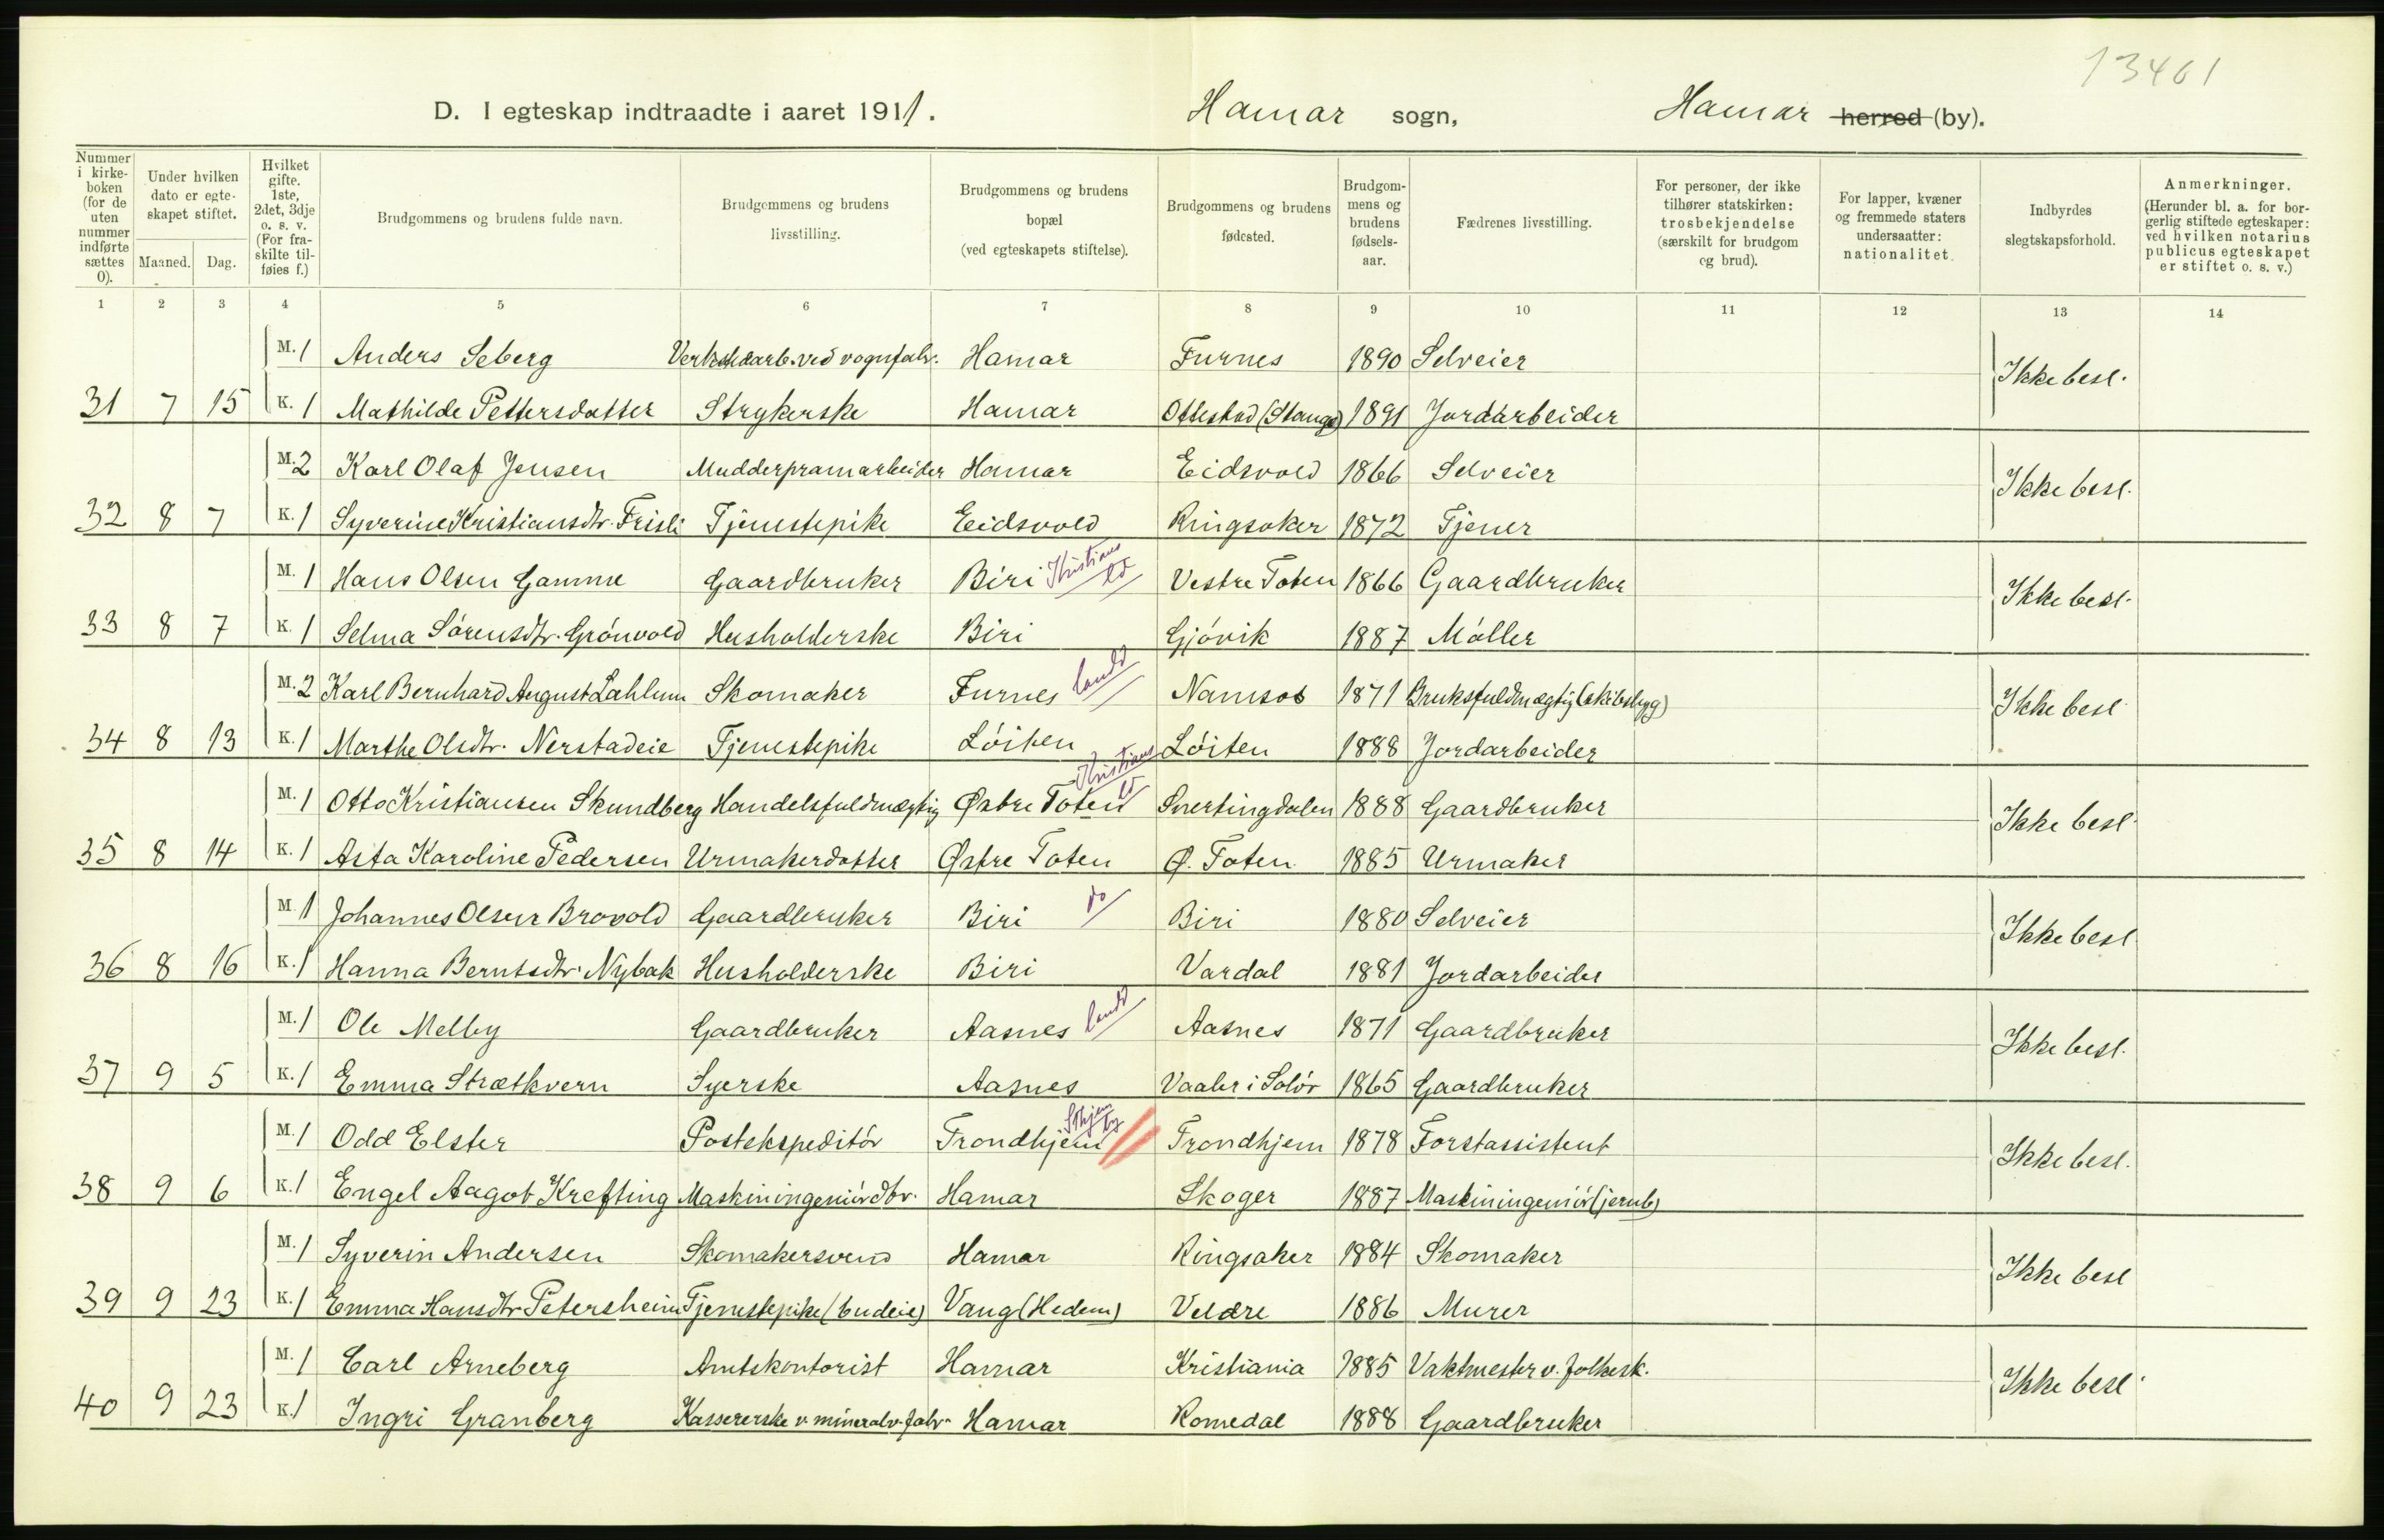 13461
D. I egteskap indtraadte i aaret 1911. Hamar sogn, Hamar herred (by).
Nummer i kirkeboken (for de uten nummer indførte sættes 0). Under hvilken dato er egteskapet stiftet. Maaned. Dag. Hvilket gifte. 1ste, 2det, 3dje o. s. v. (For fraskilte tilføies f.) Brudgommens og brudens fulde navn. Brudgommens og brudens livsstilling. Brudgommens og brudens bopæl (ved egteskapets stiftelse). Brudgommens og brudens fødested. Brudgommens og brudens fødselsaar. Fædrenes livsstilling. For personer, der ikke tilhører statskirken: trosbekjendelse (særskilt for brudgom og brud). For lapper, kvæner og fremmede staters undersaatter: nationalitet. Indbyrdes slegtskapsforhold. Anmerkninger. (Herunder bl. a. for borgerlig stiftede egteskaper: ved hvilken notarius publicus egteskapet er stiftet o. s. v.)
1 2 3 4 5 6 7 8 9 10 11 12 13 14
M. 1 Anders Seberg ved vognfabr. Hamar Furnes 1890 Selveier Ikke besl.
31 7 15 K. 1 Mathilde Pettersdatter Strykerske Hamar Ottestad (Stange) 1891 Jordarbeider
M. 2 Karl Olaf Jensen Mudderpramarbeider Hamar Eidsvold 1866 Selveier Ikke besl.
32 8 7 K. 1 Syverine Kristiansdtr. Frisli Tjenestepike Eidsvold Ringsaker 1872 Tjener
M. 1 Hans Olsen Gamme Gaardbruker Biri Kristians Vestre Toten 1866 Gaardbruker Ikke besl.
33 8 7 K. 1 Selma Sörensdtr. Grönvold Husholderske Biri Gjövik 1887 Möller
M. 2 Karl Bernhard August Lahlum Skomaker Furnes land Namsos 1871 Bruksfuldmægtig (skibsbyg) Ikke besl
34 8 13 K. 1 Marthe Olsdtr. Nerstadeie Tjenestepike Löiten Löiten 1888 Jordarbeider
M. 1 Otto Kristiansen Skundberg Handelsfuldmægtig Østre Toten Kristians Snertingdalen 1888 Gaardbruker Ikke besl.
35 8 14 K. 1 Asta Karoline Pedersen Urmakerdatter Østre Toten Ø. Toten 1885 Urmaker
M. 1 Johannes Olsen Brovold Gaardbruker Biri do Biri 1880 Selveier Ikke besl
36 8 16 K. 1 Hanna Berntsdtr. Nybak Husholderske Biri Vardal 1881 Jordarbeider
M. 1 Ole Melby Gaardbruker Aasnes land Aasnes 1871 Gaardbruker Ikke besl.
37 9 5 K. 1 Emma Strætkvern Syerske Aasnes Vaaler i Solör 1865 Gaardbruker
M. 1 Odd Elster Postekspeditör Trondhjem by Trondhjem 1878 Forstassistent Ikke besl.
38 9 6 K. 1 Engel Aagot Krefting Maskiningeniördtr. Hamar Skoger 1887 Maskiningeniör (jernb)
M. 1 Syverin Andersen Skomakersvend Hamar Ringsaker 1884 Skomaker Ikke besl
39 9 23 K. 1 Emma Hansdtr. Petersheim Tjenestepike (budeie) Vang (Hedem) Veldre 1886 Murer
M. 1 Carl Arneberg Amtskontorist Hamar Kristiania 1885 Vaktmester v. folkesk. Ikke besl.
40 9 23 K. 1 Ingri Granberg Kassererske v. mineralv. fabr. Hamar Romedal 1888 Gaardbruker